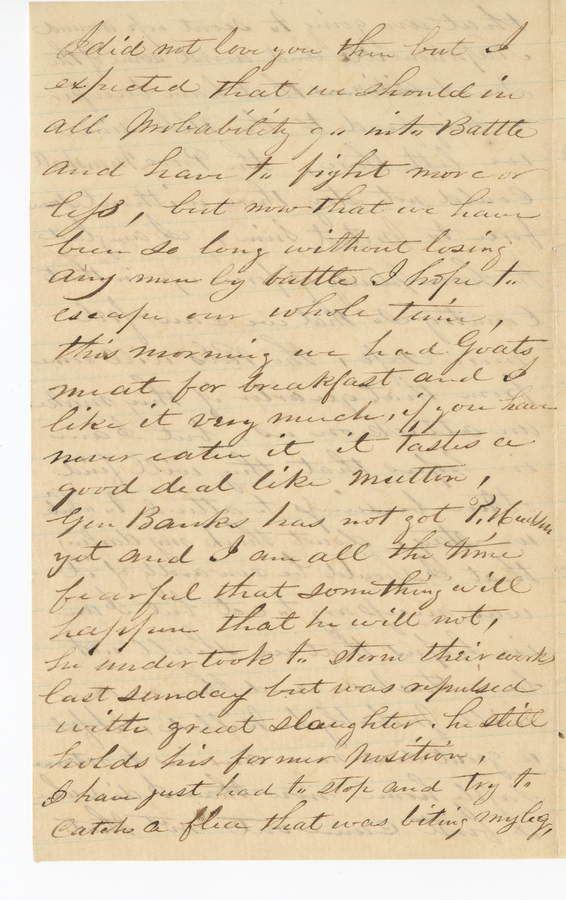 I did not love you then but I
expected that we should in
all probability go into Battle
and have to fight more or
less, but now that we have
been so long without losing
any men by battle I hope to
escape our whole time,
this morning we had Goats
meat for breakfast and I
like it very much, if you have
never eaten it it tastes a
good deal like mutton,
Gen Banks has not got P. Hudson
yet and I am all the time
fearful that something will
happen that he will not,
he undertook to storm their works
last sunday but was repulsed
with great slaughter. he still
holds his former position,
I have just had to stop and try to
catch a flea that was biting my leg,